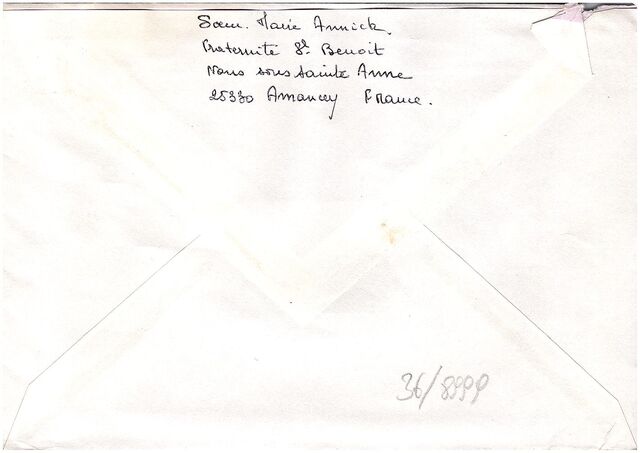 Sœur. Marie Annick.
Fraternité St Benoit
Nans sous Sainte Anne
25330 Amancey France.
36/8999